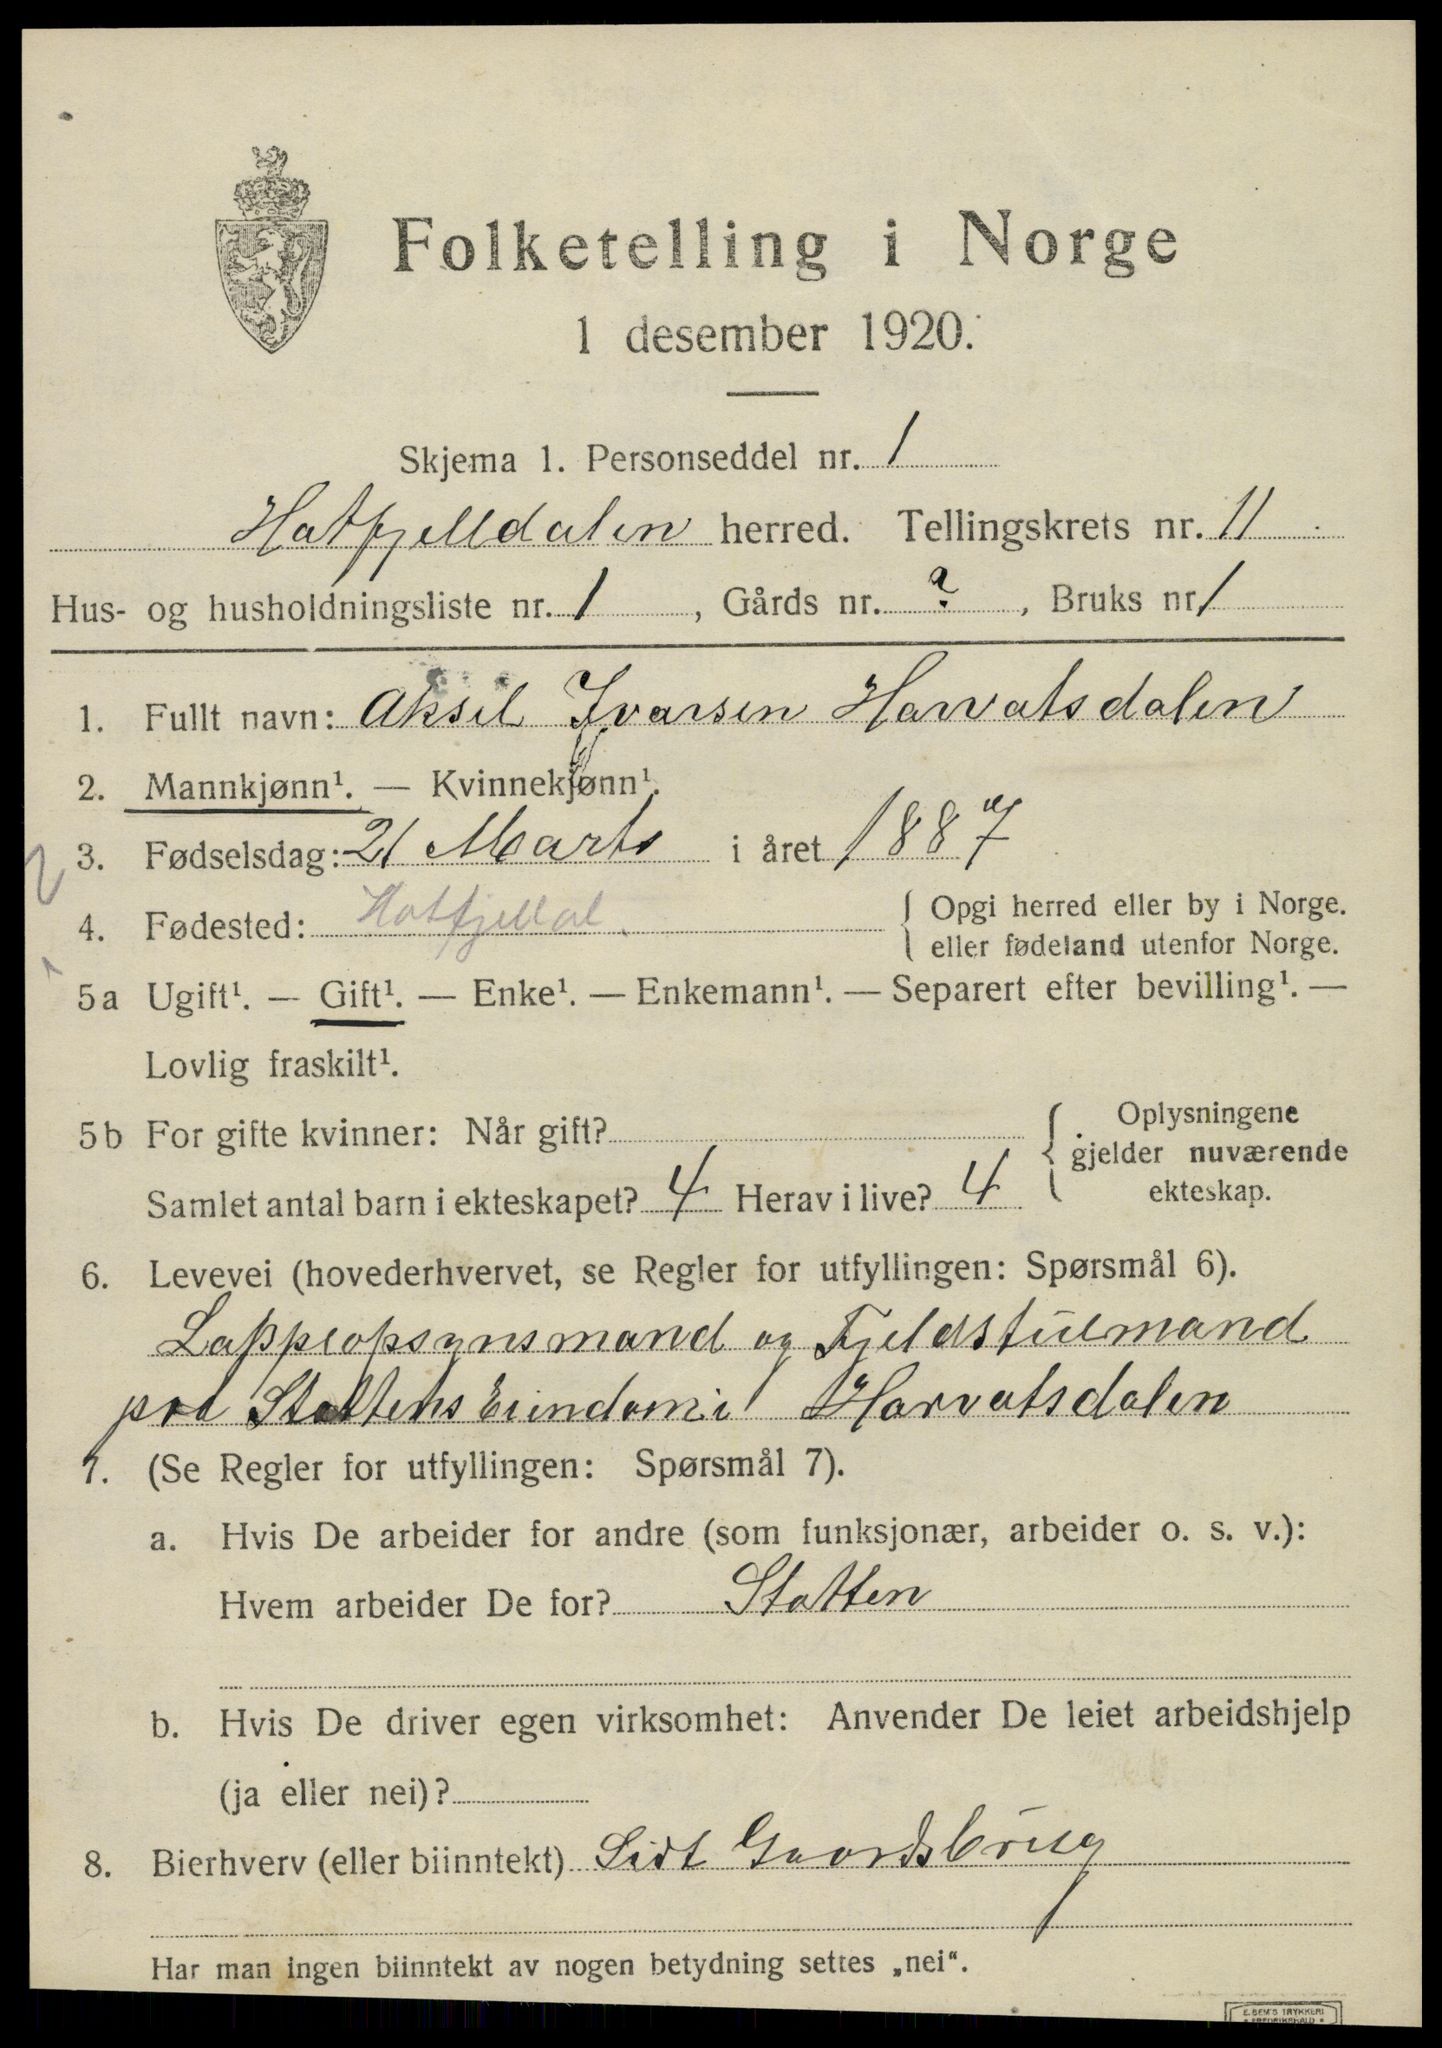 Folketelling i Norge
1 desember 1920.
Skjema 1. Personseddel nr. 1
Hatfjelldalen herred. Tellingskrets nr. 11
Hus- og husholdningsliste nr. 1, Gårds nr. ?, Bruks nr 1
1. Fullt navn: Aksel Ivarsen Harvatsdalen
2. Mannkjønn¹. — Kvinnekjønn¹.
3. Fødselsdag: 21 Marts i året 1887
4. Fødested: Hatfjelldal. { Opgi herred eller by i Norge.
eller fødeland utenfor Norge.
5a Ugift¹. — Gift¹. — Enke¹. — Enkemann¹. — Separert efter bevilling¹. —
Lovlig fraskilt¹.
5b For gifte kvinner: Når gift? { Oplysningene
gjelder nuværende
Samlet antal barn i ekteskapet? 4 Herav i live? 4 ekteskap.
6. Levevei (hovederhvervet, se Regler for utfyllingen: Spørsmål 6).
Lappeopsynsmand og Fjeldstuemand
paa Stattens Eiendom i Harvatsdalen
7. (Se Regler for utfyllingen: Spørsmål 7).
a. Hvis De arbeider for andre (som funksjonær, arbeider o. s. v.):
Hvem arbeider De for? Statten
b. Hvis De driver egen virksomhet: Anvender De leiet arbeidshjelp
(ja eller nei)?
8. Bierhverv (eller biinntekt) Lidt Gaardsbrug
Har man ingen biinntekt av nogen betydning settes „nei“.
E. SEM'S TRYKKERI
* FREDRIKSHALD *